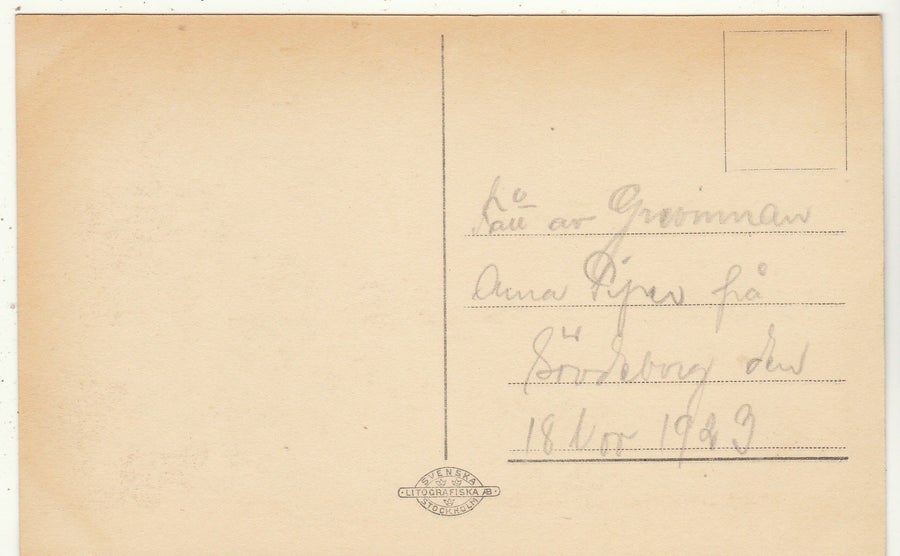 av Grevinnan
Anna Piper på
Sövdeborg den
18 Nov 1923
SVENSKA
LITOGRAFISKA AB
STOCKHOLM